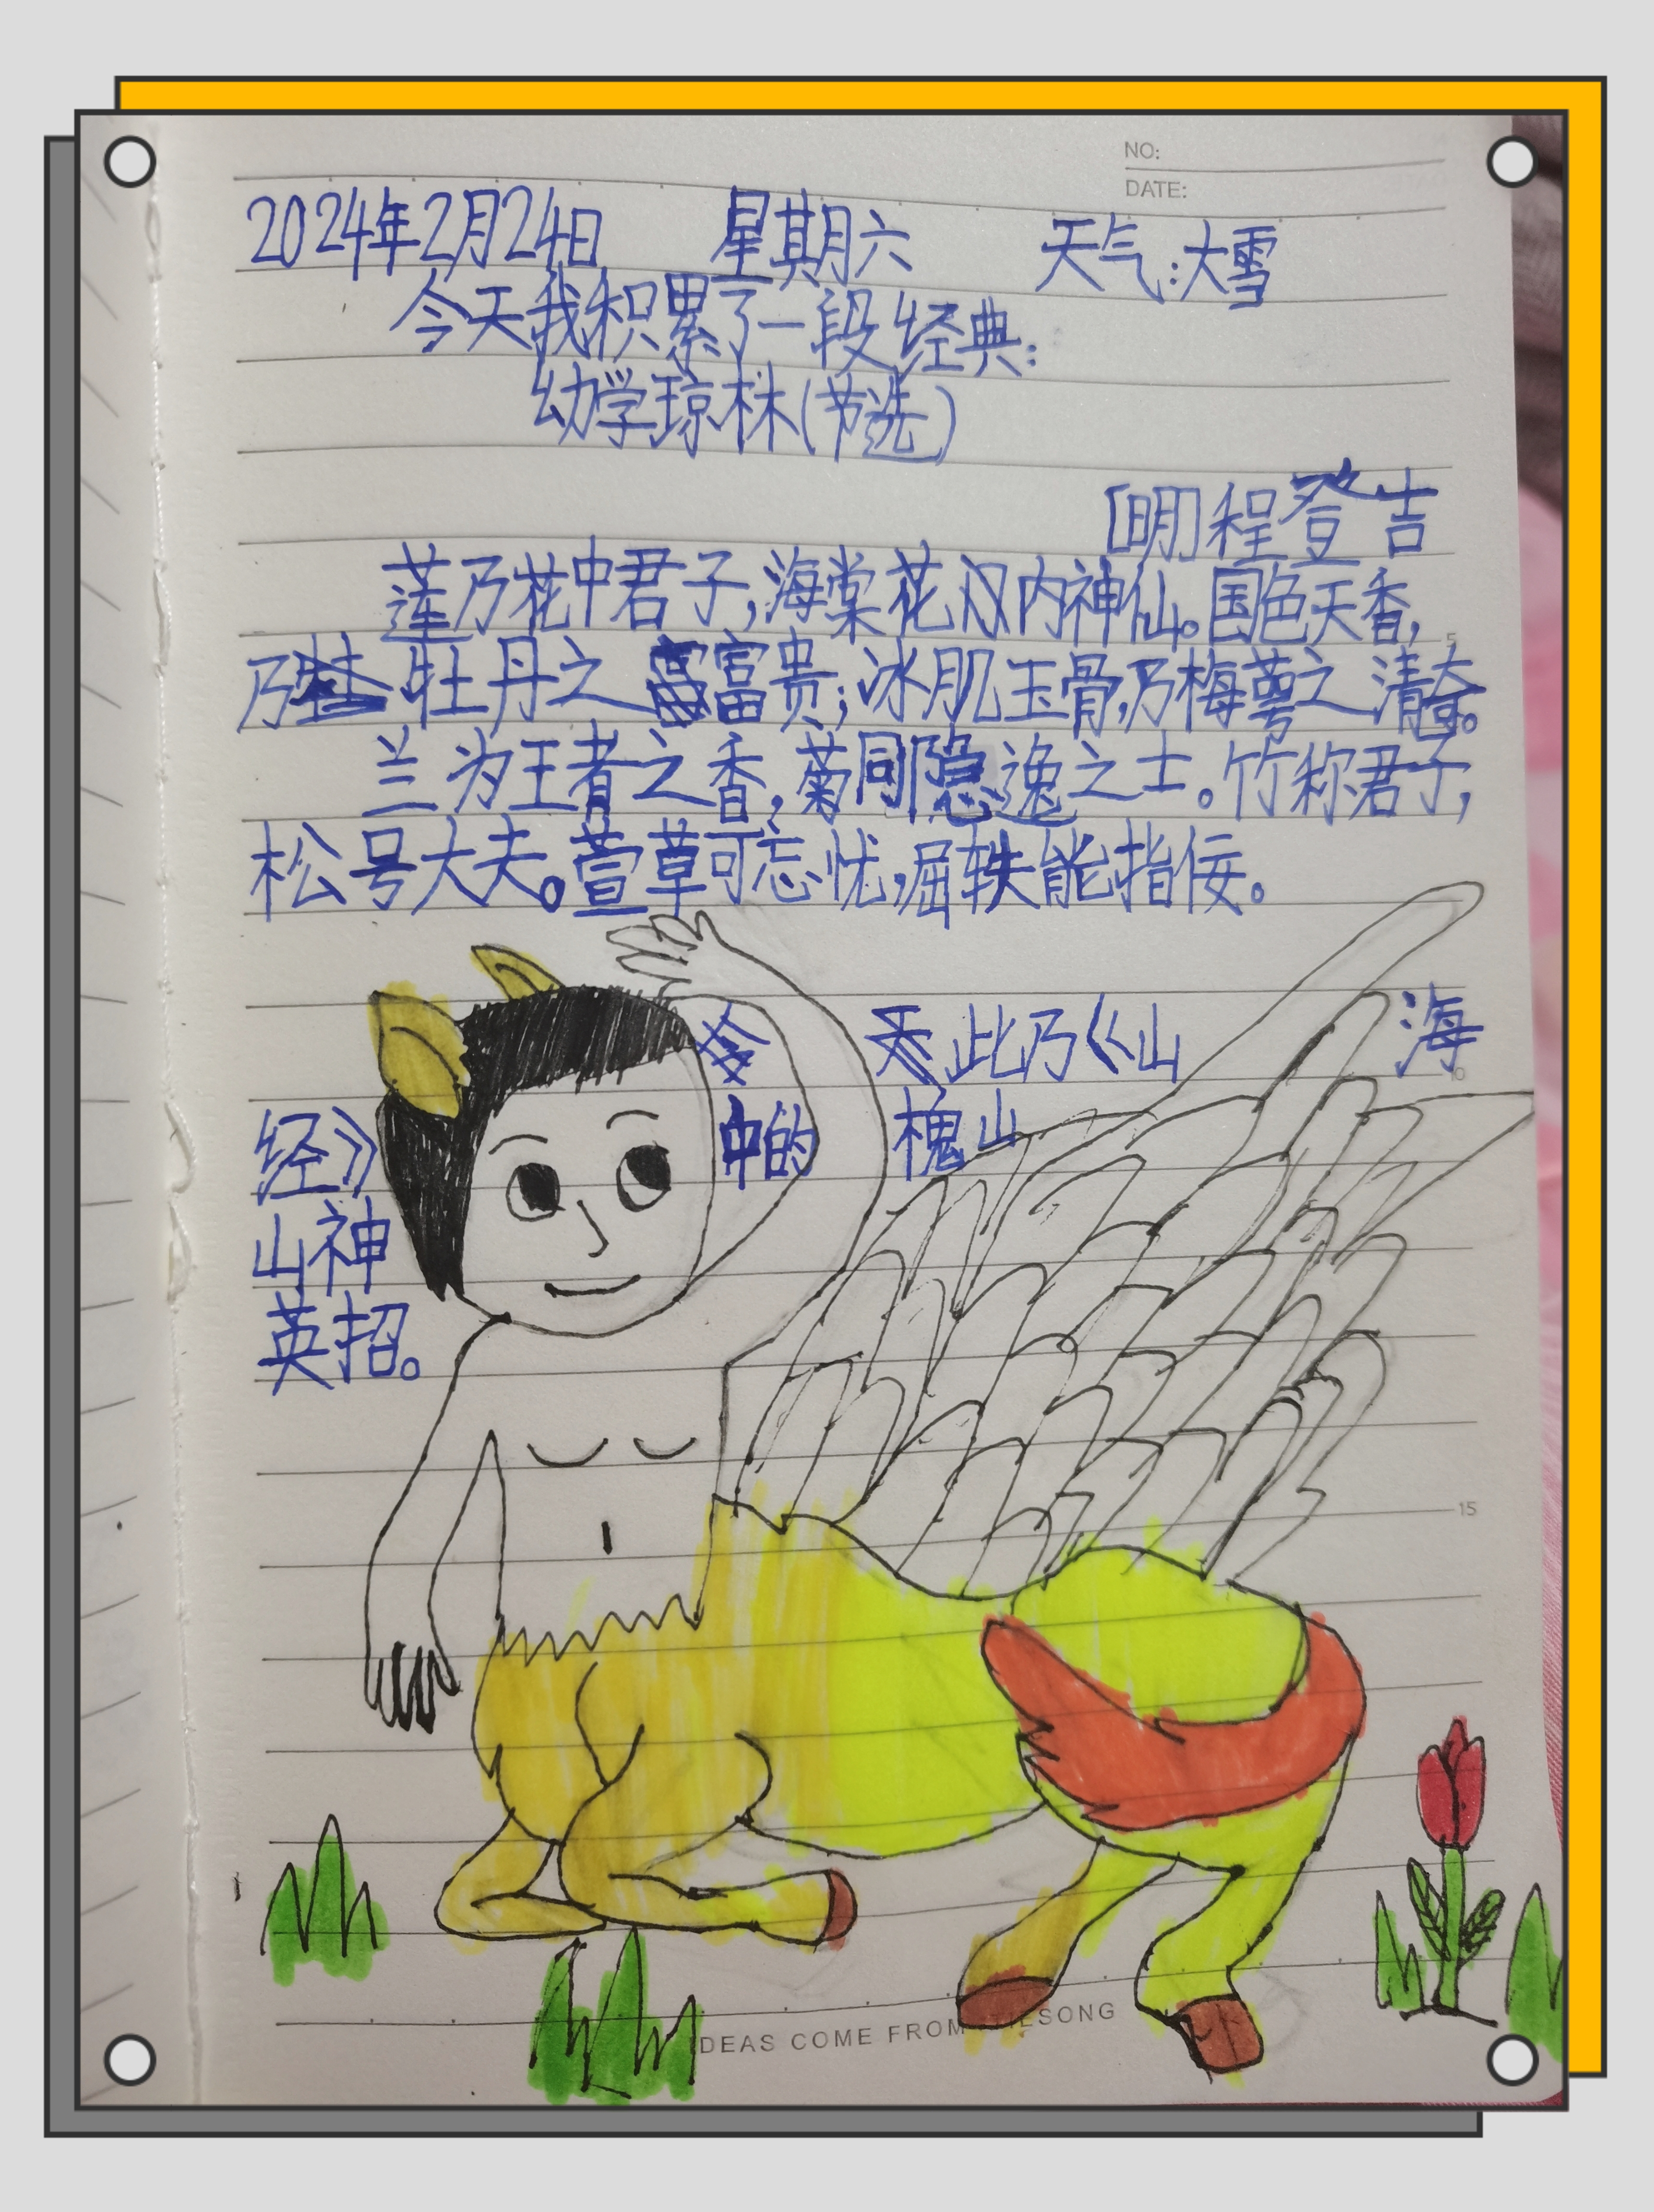 NO:
DATE:
2024年2月24日 星期六 天气:大雪
今天我积累了一段经典:
幼学琼林(节选)
[明]程登吉
莲乃花中君子,海棠花内神仙。国色天香,
乃牡丹之富贵;冰肌玉骨,乃梅萼之清奇。
兰为王者之香,菊同隐逸之士。竹称君子,
松号大夫。萱草可忘忧,屈轶能指佞。
5
此乃《山海
10
经》中的槐山
山神
英招。
15
IDEAS COME FROM TILSONG